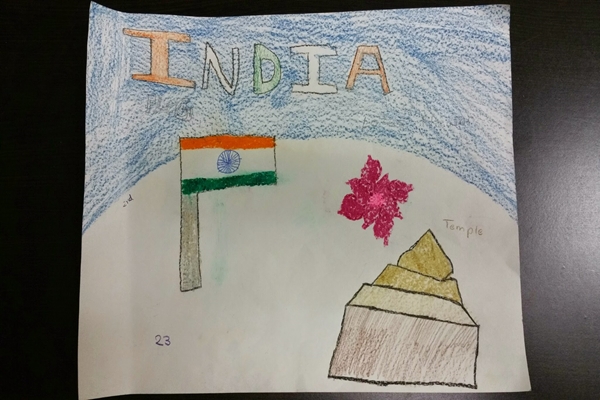 INDIA
Temple
23